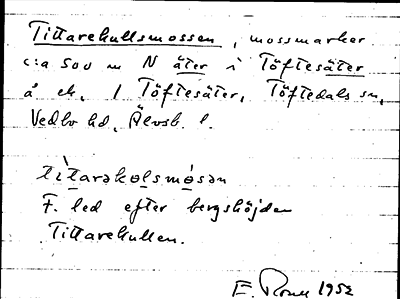 Tittarekullsmossen, mossmarker
c:a 500 m N äter i Töftesäter
å ek. 1 Töftesäter, Töftedals sn,
Vedbo hd, Älvsb. l.
tìtarəkolsmósən
F. led efter bergshöjden
Tittarekullen.
E. 1952